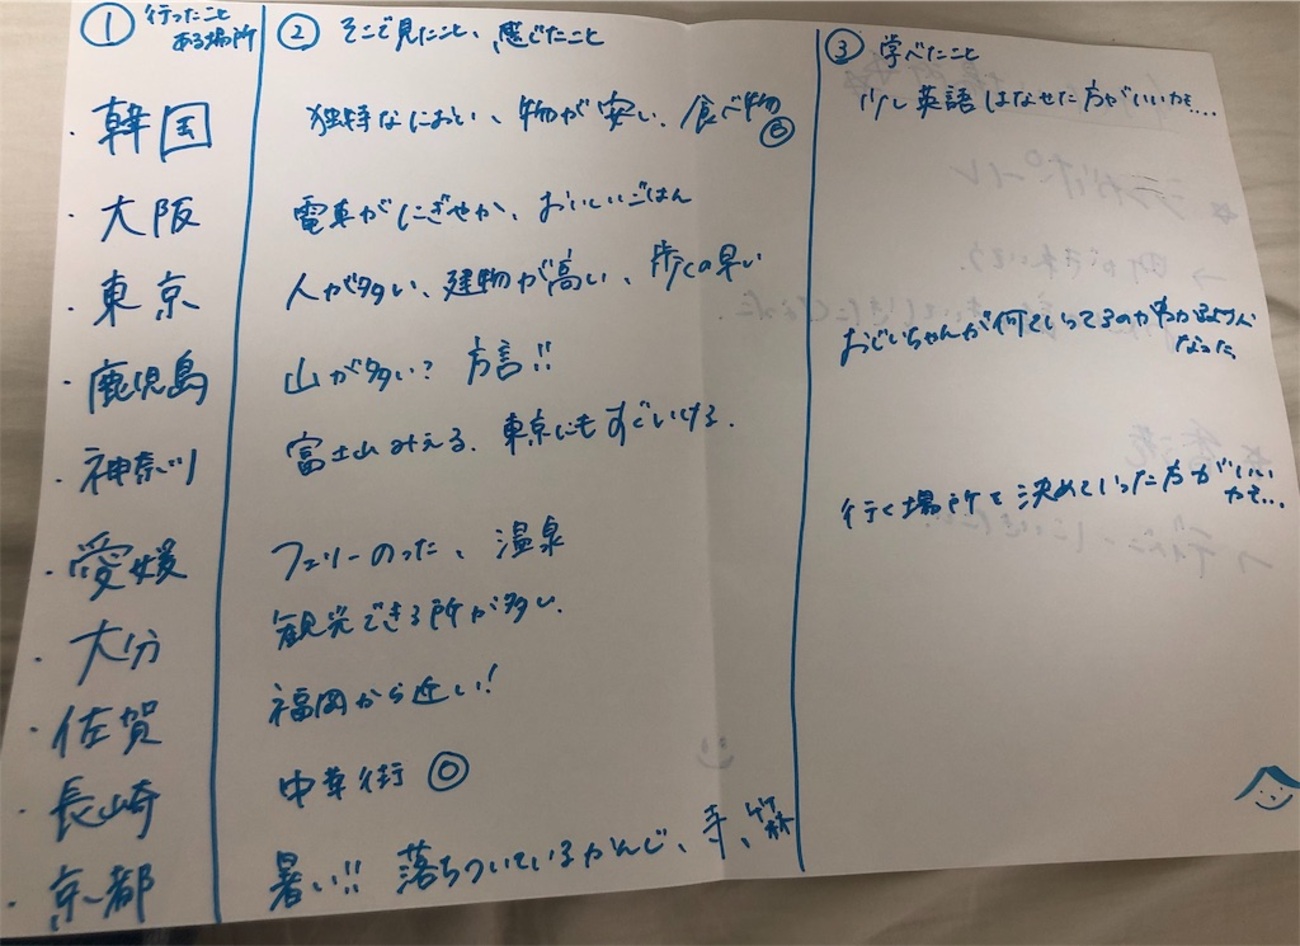 ① 行ったこと
ある場所
② そこで見たこと、感じたこと
③ 学べたこと
・韓国
独特なにおい、物が安い、食べ物
◎
少し英語はなせた方がいいかも....
・大阪
電車がにぎやか、おいしいごはん
・東京
人が多い、建物が高い、歩くの早い
・鹿児島
山が多い? 方言!!
おじいちゃんが何ていってるのかわかるように
なった
・神奈川
富士山みえる、東京にもすぐいける.
行く場所を決めていった方がいい
かも...
・愛媛
フェリーのった、温泉
・大分
観光できる所が多い.
・佐賀
福岡から近い!
・長崎
中華街 ◎
・京都
暑い!! 落ちついているかんじ、寺、竹林